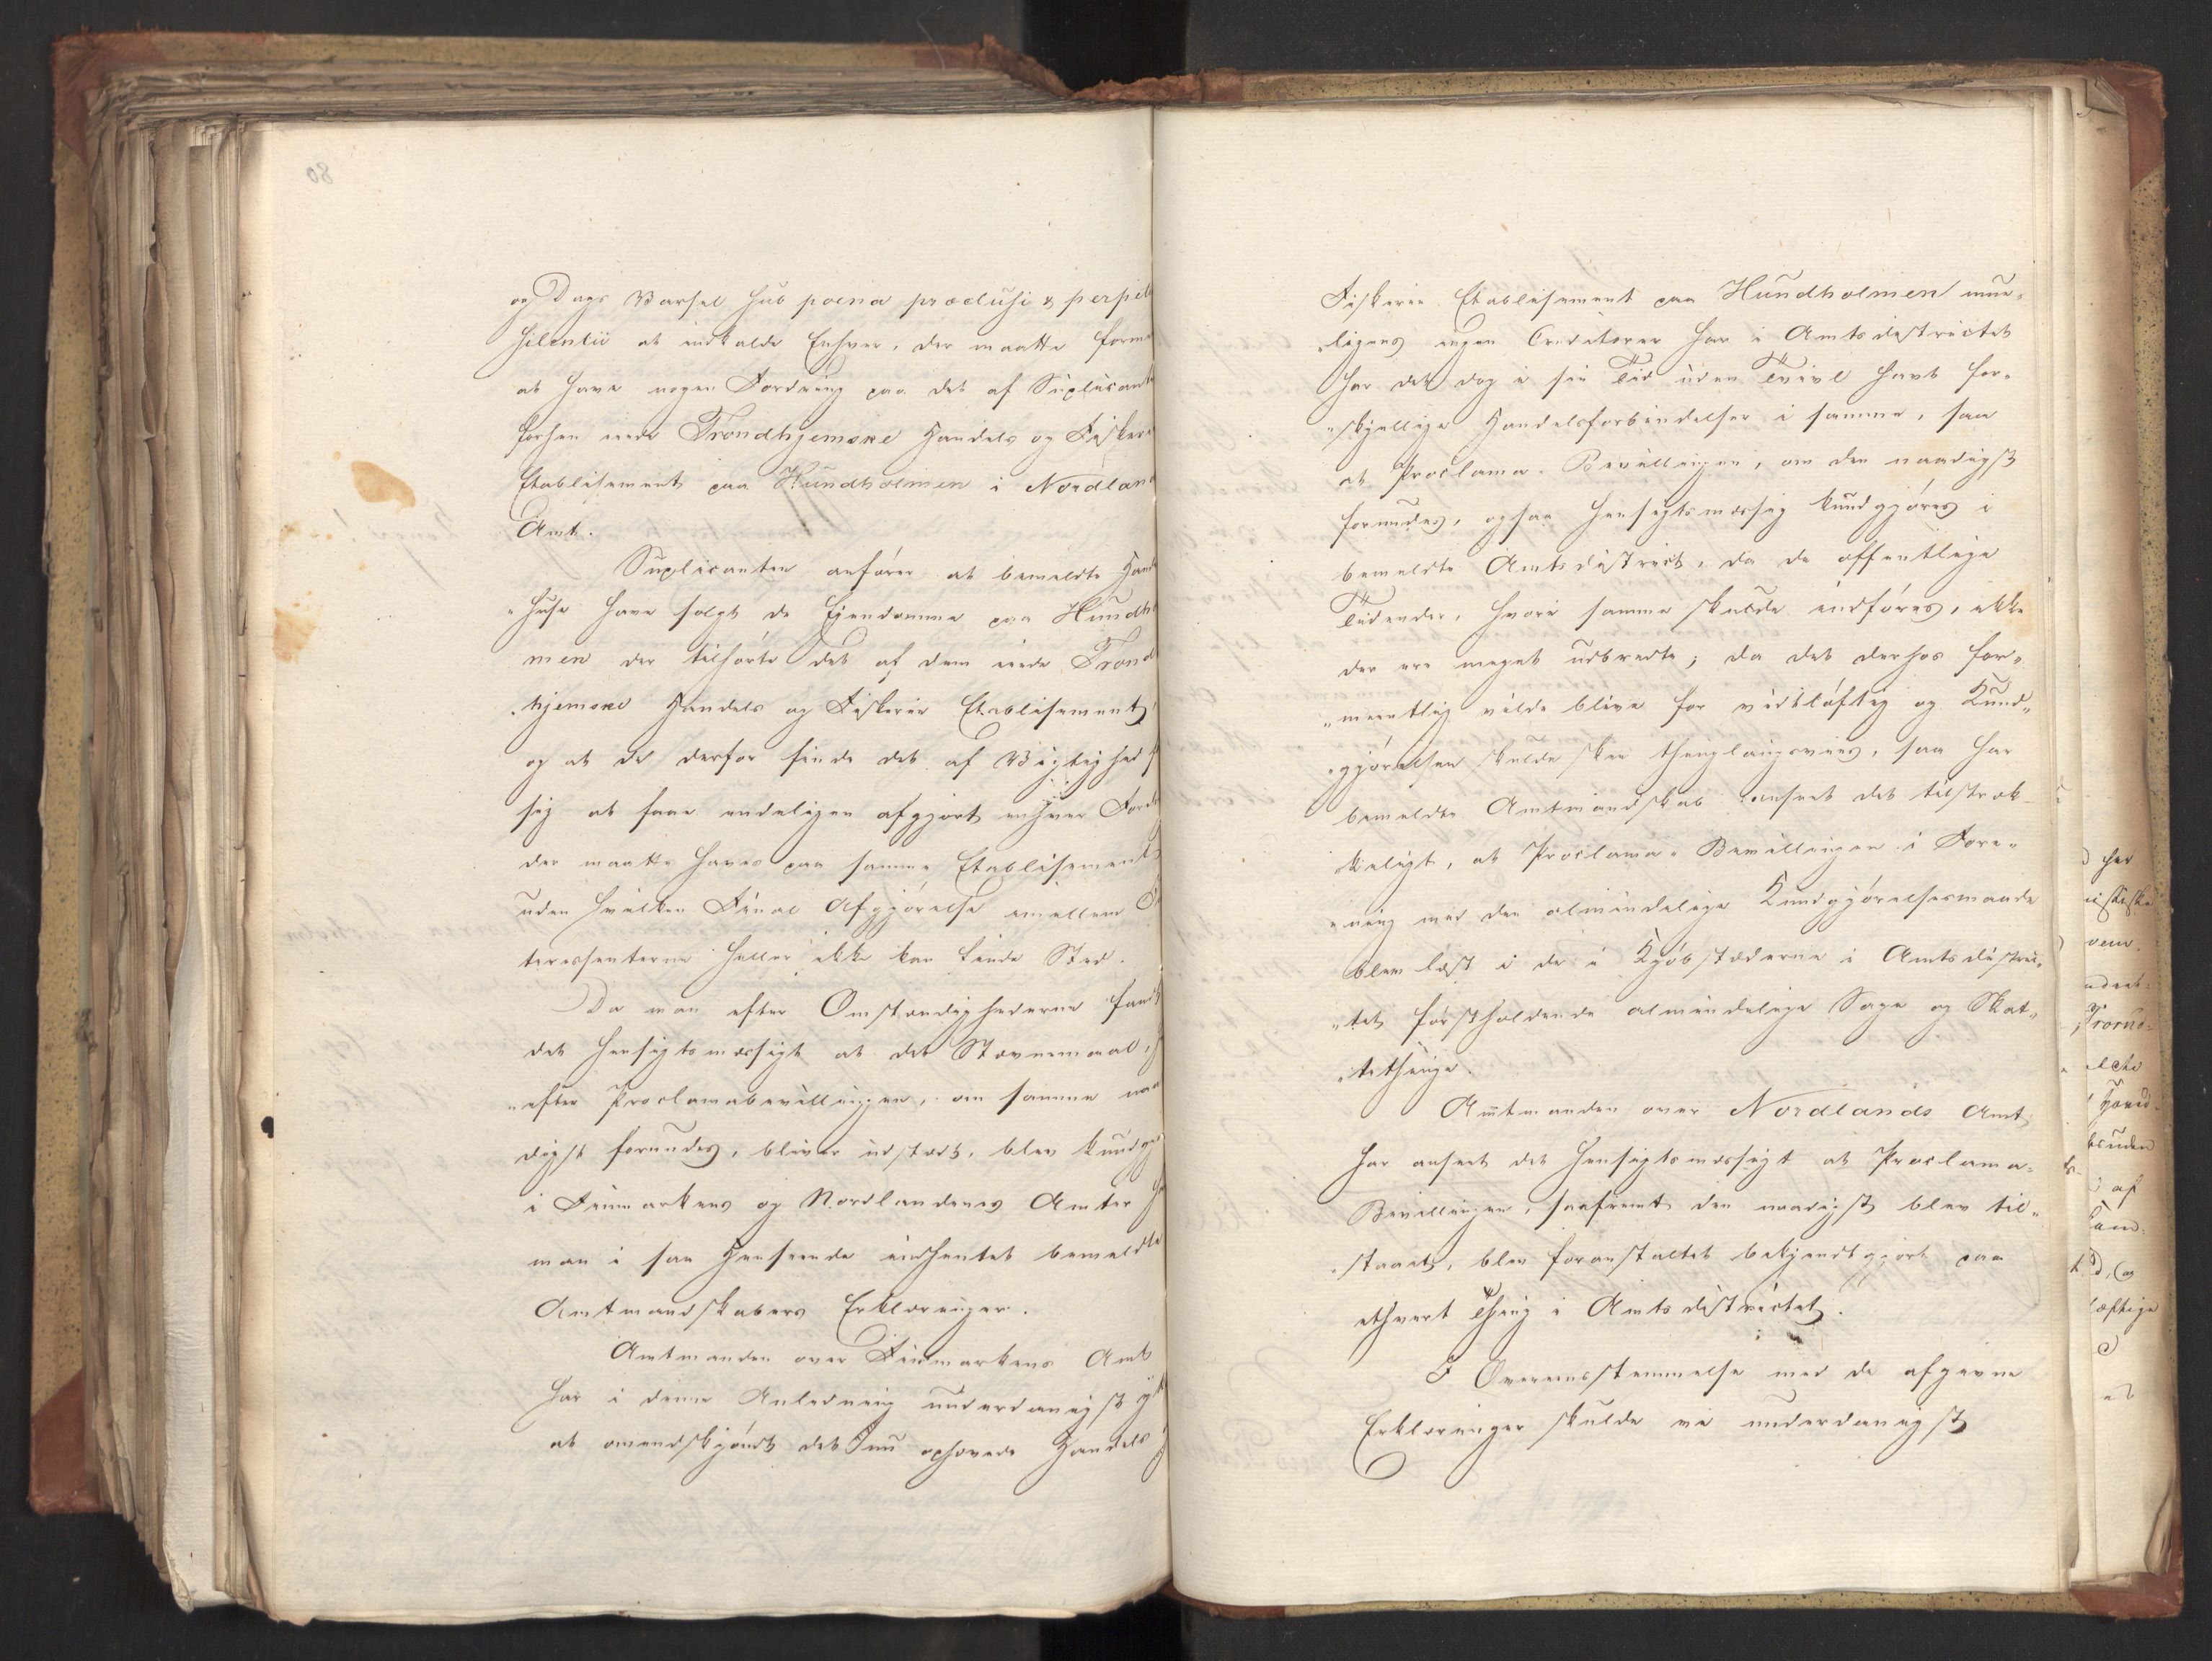 og Dags Varsel sub poena præclusi & perpet
silentii at indkalde Enhver, der maatte forme
at have nogen Fordring paa det af Suplicant
forhen eiede Trondhjemske Handels og Fiskeri
Etablisement paa Hundholmen i Nordland
Amt.
Suplicanten anfører at bemeldte Hand
"huse have solgt de Ejendomme paa Hundh
men der tilhørte det af dem eiede Trond
"hjemske Handels og Fiskerie Etablisement
og at de derfor finde det af Vigtighed f
sig at faae endeligen afgjort enhver Ford
der maatte haves paa samme Etablisement
uden hvilken Final Afgjørelse imellem
teressenterne heller ikke kan finde Sted.
Da man efter Omstændighederne fandt
det hensigtsmæssigt at det Stævnemaal, h
"efter Proclamabevillingen, om samme naa
digst forundes, bliver udstædt, blev kundgj
i Finmarkens og Nordlandenes Amter h
man i saa Henseende indhentet bemeldte
Amtmandskabers Erklæringer.
Amtmanden over Finmarkens Amt
har i denne Anledning underdanigst
at omendskjøndt det nu ophævede Handels
Fiskerie Etablisement paa Hundholmen mue,
"ligens ingen Creditorer har i Amtsdistrictet
har det dog i sin Tid uden Tvivl havt for,
"skjellige Handelsforbindelser i samme, saa
at Proclama-Bevillingen, om den naadigst
forundes, ogsaa hensigtsmæssig kundgjøres i
bemeldte Amtsdistrict, da de offentlige
Tidender, hvori samme skulde indføres, ikke
der ere meget udbredte; da det derhos for,
"meentlig vilde blive for vidtløftig og Kund,
"gjørelsen skulde skee thinglaugsviis, saa har
bemeldte Amtmandskab anseet det tilstræk-
keligt, at Proclama-Bevillingen i Fore,
"ning med den almindelige Kundgjørelsesmaade
blev læst i de i Kjøbstæderne i Amtsdistric,
"tet førstholdende almindelige Sage og Skat,
"tethinge.
Amtmanden over Nordlands Amt
har anseet det hensigtsmæssigt at Proclama-
Bevillingen, saafremt den naadigst blev til,
"staaet, blev foranstaltet bekjendtgjort paa
ethvert Thing i Amtsdistrictet.
I Overeensstemmelse med de afgivne
Erklæringer skulde vi underdanigst